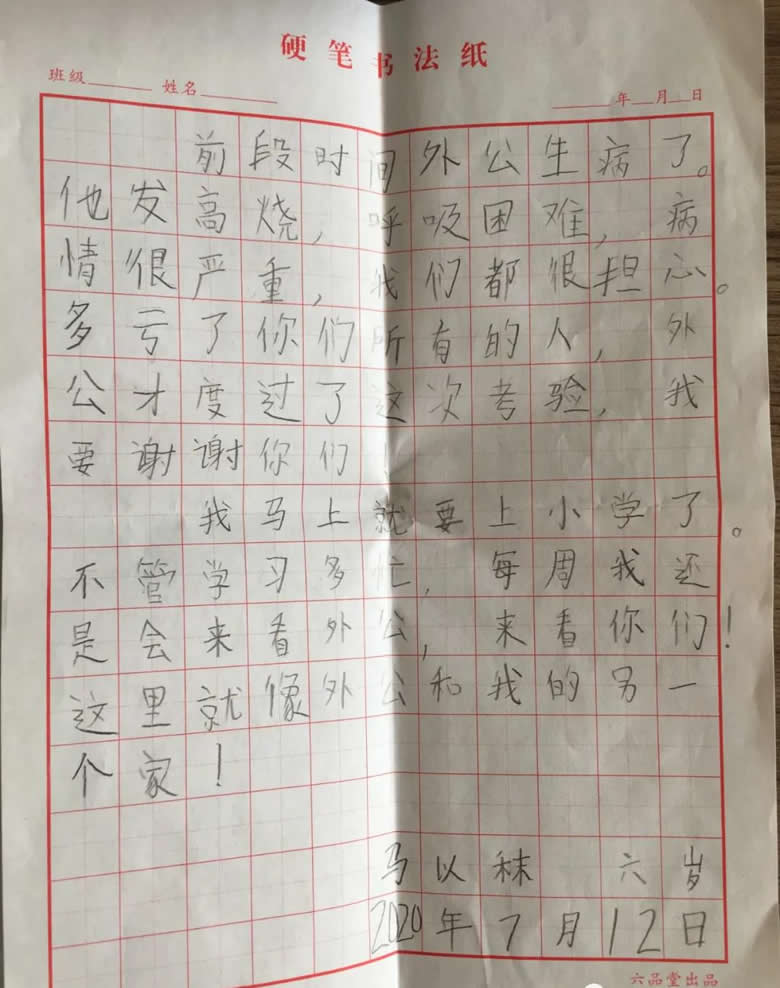 硬笔书法纸
班级 姓名 年 月 日
前段时间外公生病了。
他发高烧,呼吸困难,病
情很严重,我们都很担心。
多亏了你们所有的人,外
公才度过了这次考验,我
要谢谢你们
我马上就要上小学了。
不管学习多忙,每周我还
是会来看外公,来看你们!
这里就像外公和我的另一
个家!
马以秣 六岁
2020年7月12日
六品堂出品